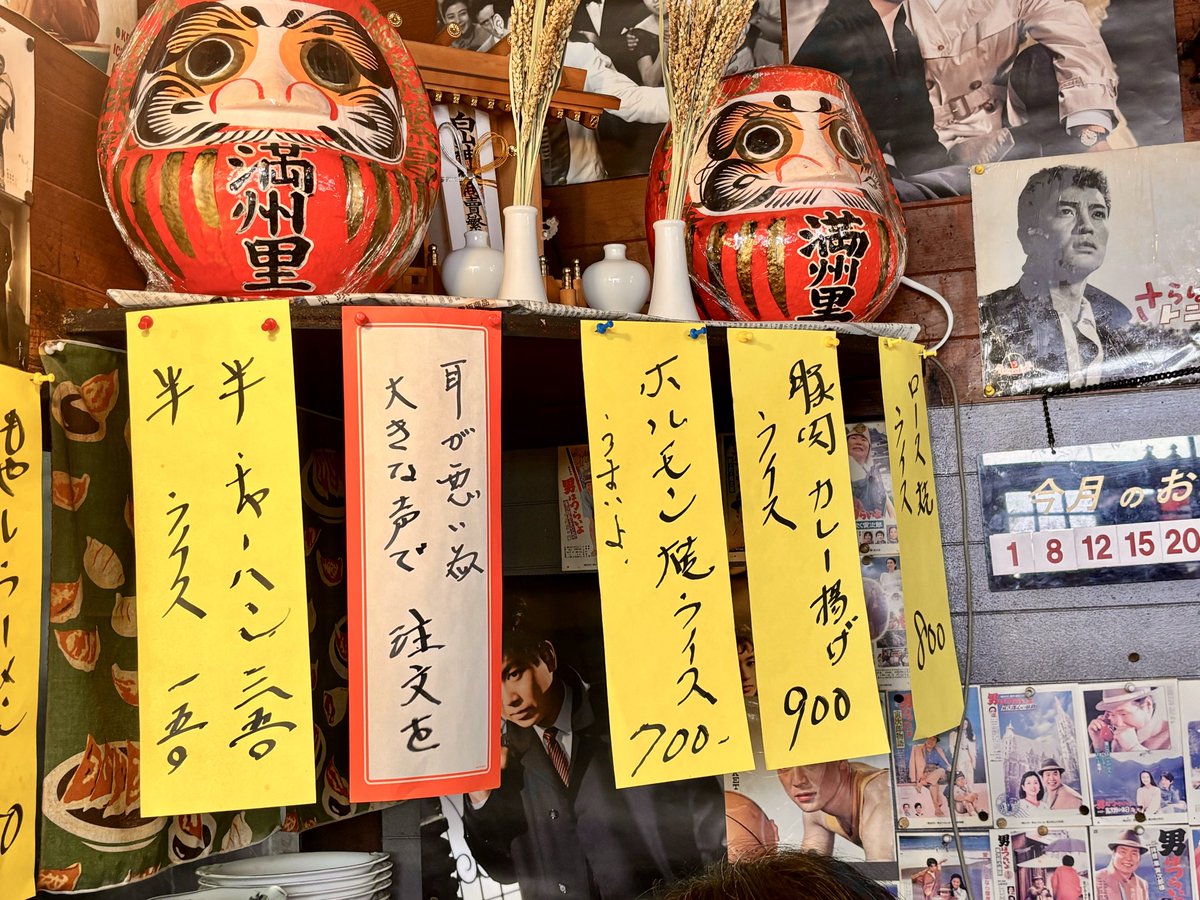 満州里
満州里
白山神
もやしラーメン
半チャーハン 三五〇
半ライス 一五〇
耳が悪い為
大きな声で 注文を
ホルモン焼ライス 700-
うまいよ
豚肉カレー揚げ 900
ライス
ロース焼 800
ライス
さらい
今月のお
1 8 12 15 20
男はつらいよ